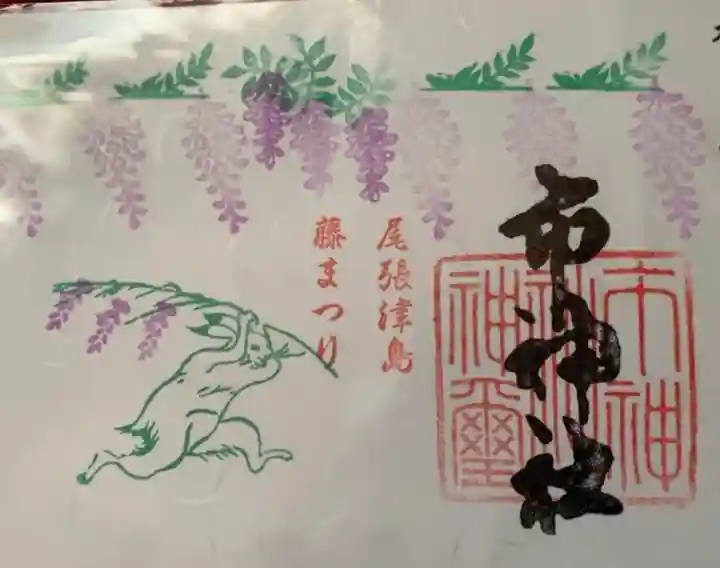 市神社
市神
社之
神璽
尾張津島
藤まつり